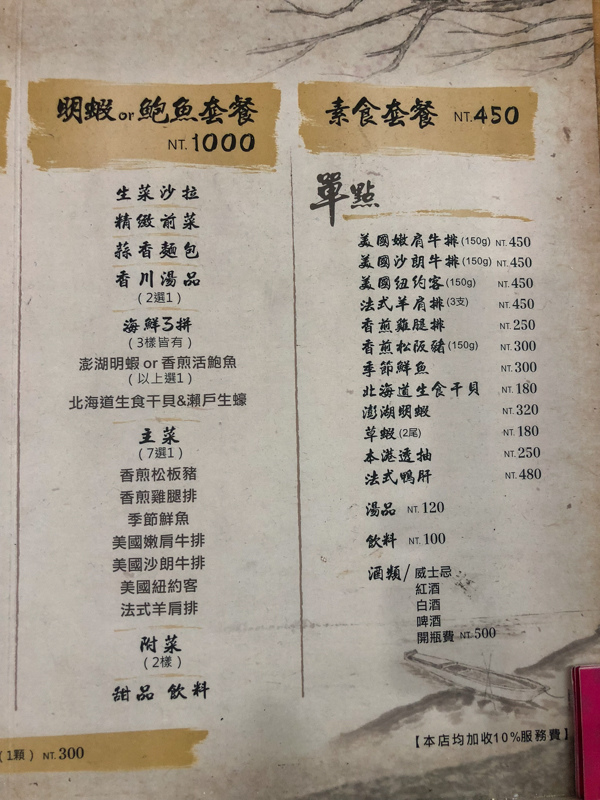 明蝦or鮑魚套餐
NT.1000
生菜沙拉
精緻前菜
蒜香麵包
香川湯品
(2選1)
海鮮3拼
(3樣皆有)
澎湖明蝦 or 香煎活鮑魚
(以上選1)
北海道生食干貝&瀨戶生蠔
主菜
(7選1)
香煎松板豬
香煎雞腿排
季節鮮魚
美國嫩肩牛排
美國沙朗牛排
美國紐約客
法式羊肩排
附菜
(2樣)
甜品 飲料
(1顆) NT.300
素食套餐 NT.450
單點
美國嫩肩牛排(150g) NT.450
美國沙朗牛排(150g) NT.450
美國紐約客(150g) NT.450
法式羊肩排(3支) NT.450
香煎雞腿排 NT.250
香煎松阪豬(150g) NT.300
季節鮮魚 NT.300
北海道生食干貝 NT.180
澎湖明蝦 NT.320
草蝦(2尾) NT.180
本港透抽 NT.250
法式鴨肝 NT.480
湯品 NT.120
飲料 NT.100
酒類/威士忌
紅酒
白酒
啤酒
開瓶費 NT.500
【本店均加收10%服務費】